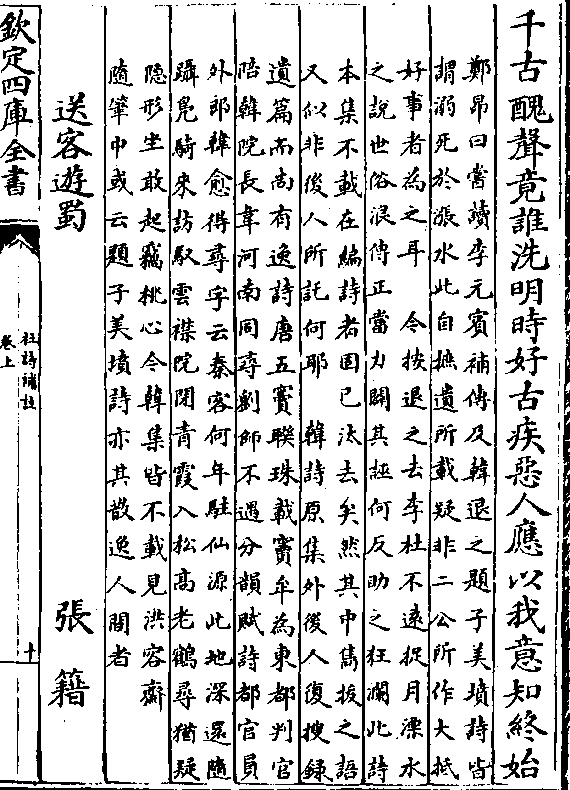 千古醜聲竟誰洗明時好古疾惡人應以我意知終始
鄭昂曰嘗讀李元賓補傳及韓退之題子美墳詩皆
謂溺死於漲水此自摭遺所載疑非二公所作大抵
好事者為之耳　今按退之去李杜不遠捉月漂水
之說世俗浪傳正當力闢其誣何反助之狂瀾此詩
本集不載在編詩者固已汰去矣然其中雋拔之語
又似非後人所託何耶　韓詩原集外後人復搜錄
遺篇而尚有逸詩唐五竇聯珠載竇牟為東都判官
陪韓院長韋河南同尋劉師不遇分韻賦詩都官員
外郎韓愈得尋字云秦客何年駐仙源此地深還隨
躡鳧騎來訪馭雲襟院閉青霞入松高老鶴尋猶疑
隱形坐敢起竊桃心今韓集皆不載見洪容齋
隨筆中或云題子美墳詩亦其散逸人間者
送客遊蜀　張籍
欽定四庫全書
杜詩攟
卷上
十